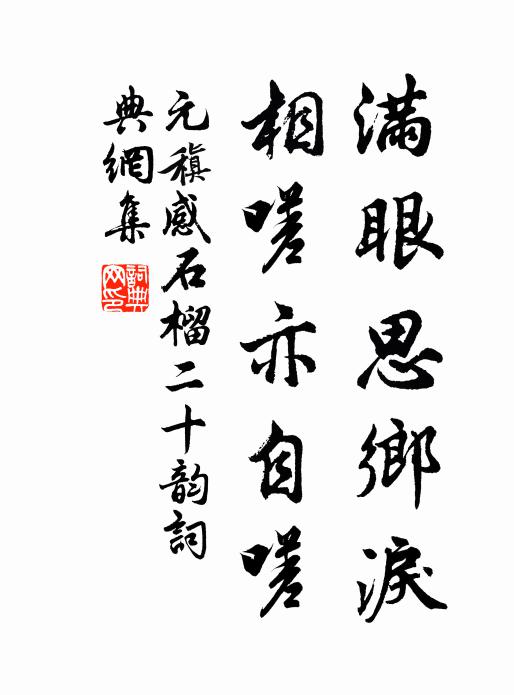 滿眼思鄉淚
相嗟亦自嗟
元稹感石榴二十韵詞
典網集
詞典网印